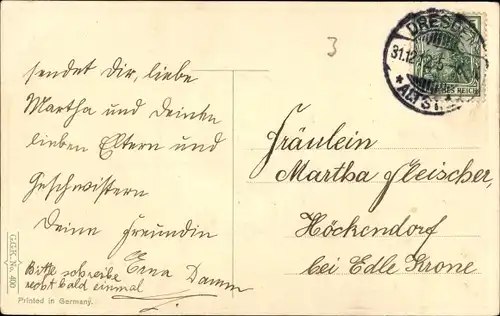 sendet Dir, liebe
Martha und Deinen
lieben Eltern und
Geschwistern
Deine Freundin
Erna Damm
Bitte schreibe
recht bald einmal
3
DRESDEN
31.12.
* ALTST.
REICH
Fräulein
Martha Fleischer,
Höckendorf
bei Edle Krone
G.G.K. No. 400
Printed in Germany.